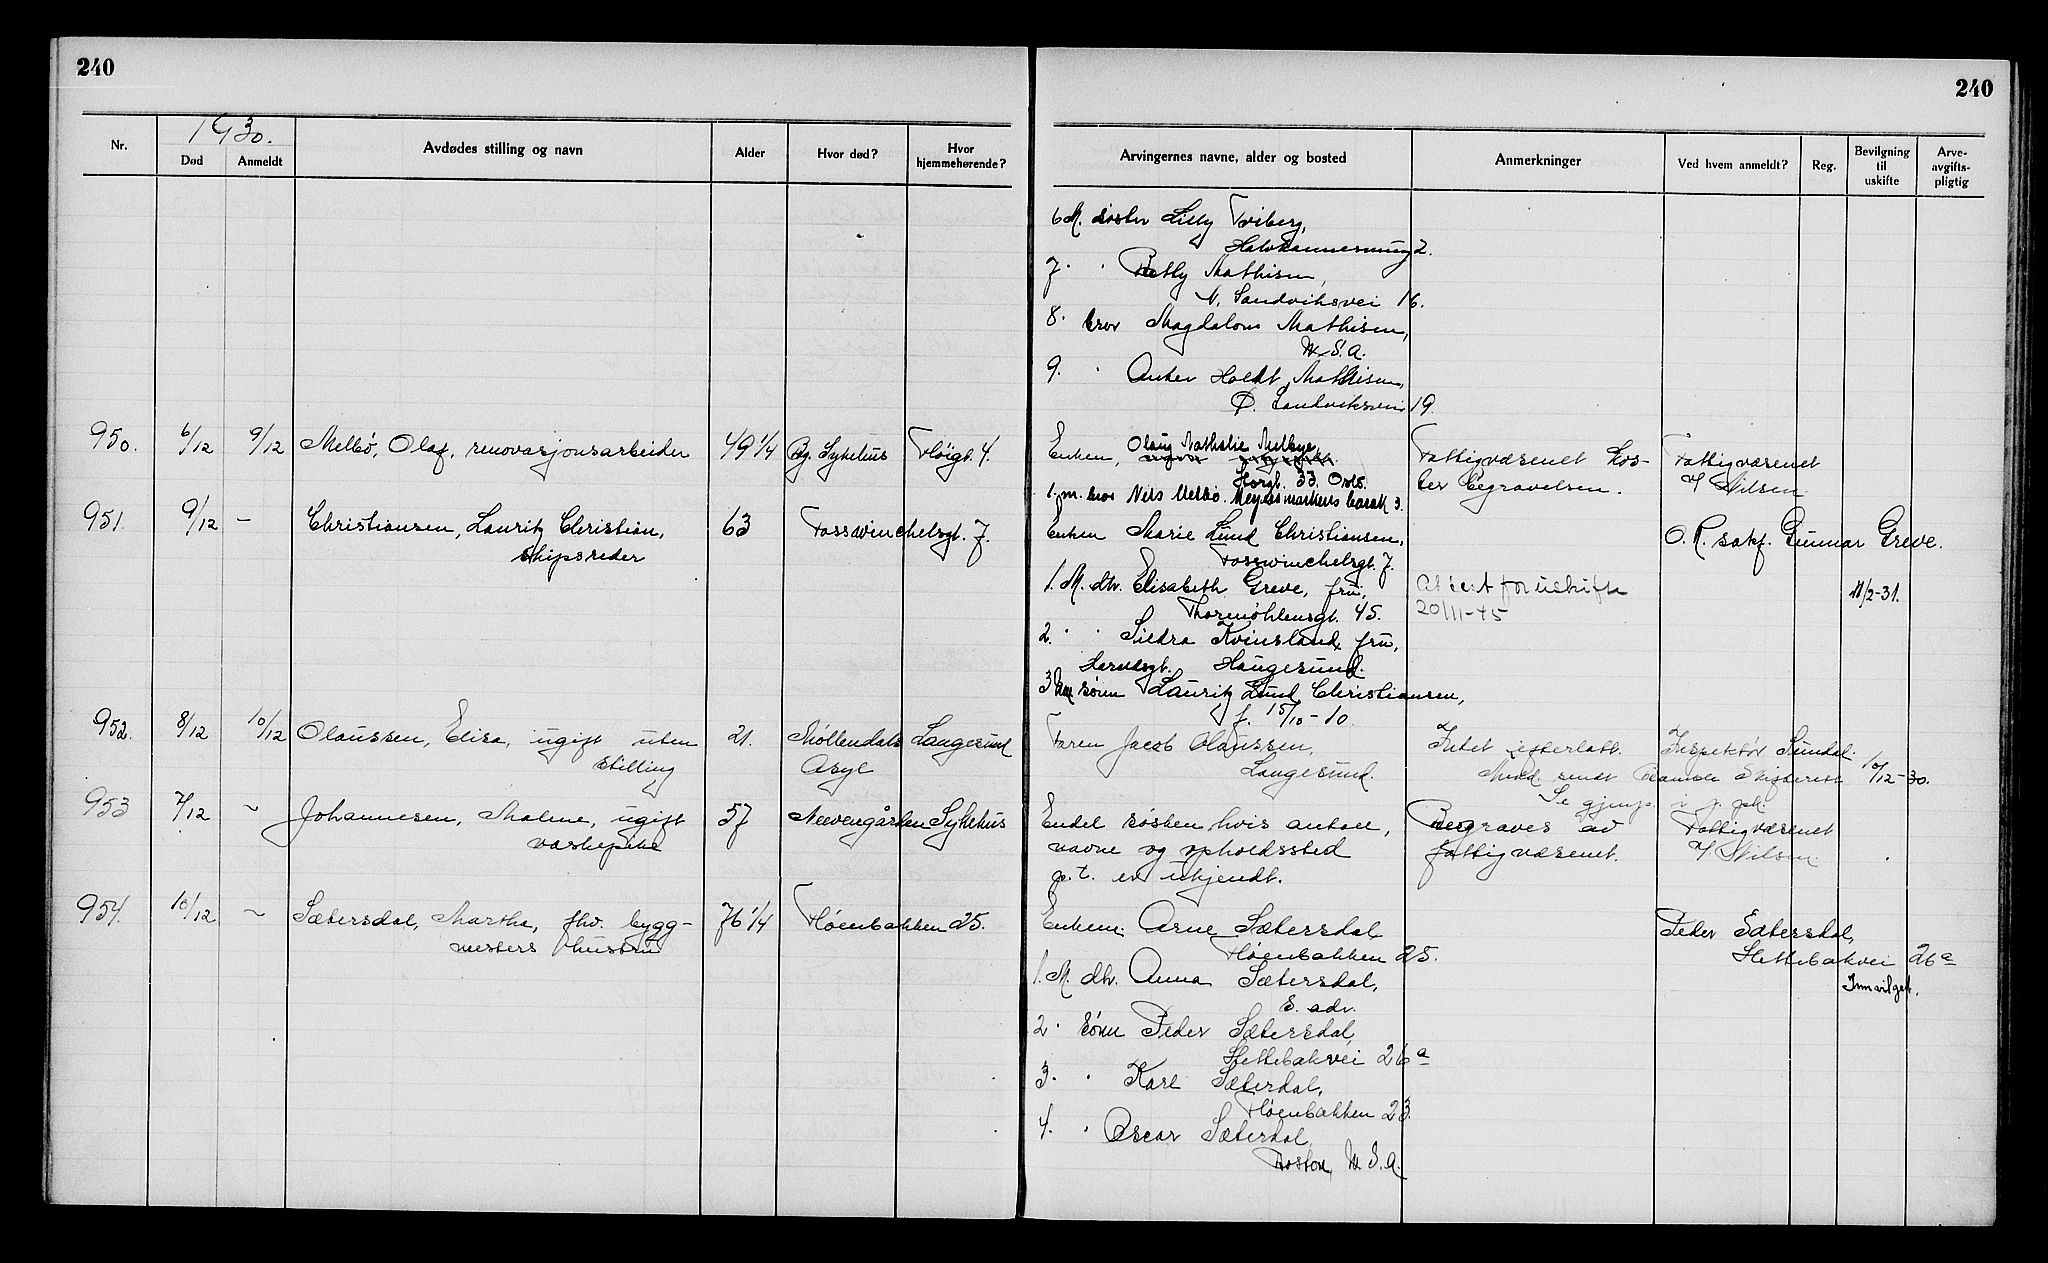 240
240
1930.
Nr.
Død
Anmeldt
Avdødes stilling og navn
Alder
Hvor død?
Hvor hjemmehørende?
Arvingernes navne, alder og bosted
Anmerkninger
Ved hvem anmeldt?
Reg.
Bevilgning til uskifte
Arve-avgifts-pligtig
6 M. søster Lilly Friberg,
2.
7. " Betty Mathisen,
N. Sandviksvei 16.
8. bror Magdalon Mathisen,
U.S.A.
9. " Anker Holdt Mathisen,
Ø. Sandviksvei 19.
950. 6/12 9/12 Melbö, Olaf, renovasjonsarbeider 49 1/4 Bg. Sykehus Fløigt. 4.
Enken, Olaug Nathalie Melbye,
33. Oslo.
1. m. bror Nils Melbö. Meyermarkens barak 3.
Fattigvæsenet kos-
ter begravelsen.
Fattigvæsenet
v/ Nilsen
951. 9/12 – Christiansen, Lauritz Christian, 63 Fosswinchelsgt. 7.
skipsreder
Enken Marie Lund Christiansen,
Fosswinchelsgt. 7.
1. M. dtr. Elisabeth Greve, fru,
Thormøhlensgt. 45.
2. " " Kvinsland, fru,
Haugesund.
3 sønn Lauritz Lund Christiansen,
f. 15/10-10
Attest for uskifte
20/11-45
O.R. sakf. Gunnar Greve.
11/2-31.
952. 8/12 10/12 Olaussen, Elisa, ugift uten 21. Möllendals Langesund
stilling Asyl
Faren Jacob Olaussen,
Langesund.
Intet efterlatt.
Inspektör Sundal.
Medd. sendt Bamble Skifterett 10/12-30.
Se gjenp. i j. pk.
953 7/12 ~ Johannesen, Malene, ugift 57 Neevengården Sykehus
vaskepike
Endel søsken hvis antall,
navne og opholdssted
p.t. er ukjendt.
Begraves av
fattigvæsenet.
Fattigvæsenet
v/ Nilsen
954. 10/12 ~ Sætersdal, Martha, fhv. bygg- 76 1/4 Fløenbakken 25.
mesters hustru
Enkem. Arne Sætersdal
Fløenbakken 25.
1. M. dtr. Anna Sætersdal,
S. adr.
2. sønn Peder Sætersdal,
Slettebakvei 26a
3. " Karl Sæterdal,
Fløenbakken 23.
4. " Oscar Sæterdal,
Boston, U.S.A.
Peder Sætersdal,
Slettebakvei 26a
Innvilget.